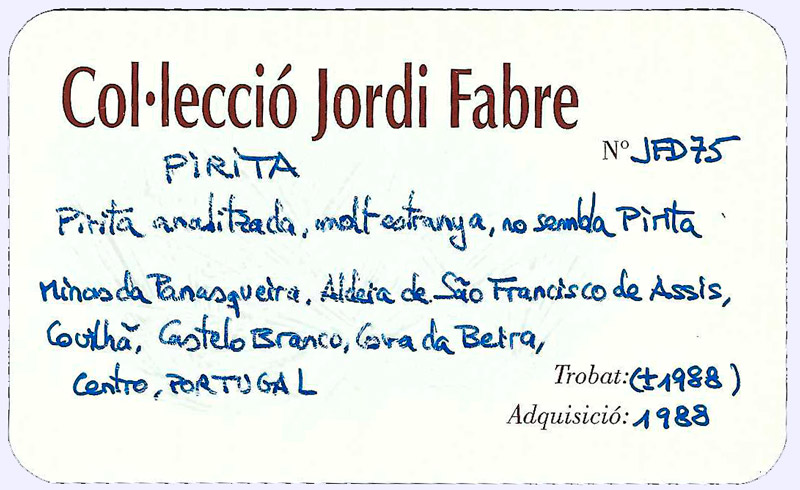 Col·lecció Jordi Fabre
Nº JFD75
PIRITA
Pirita analitzada, molt estranya, no sembla Pirita
Minas da Panasqueira, Aldeia de São Francisco de Assis,
Covilhã, Castelo Branco, Cova da Beira,
Centro, PORTUGAL
Trobat: (±1988)
Adquisició: 1988